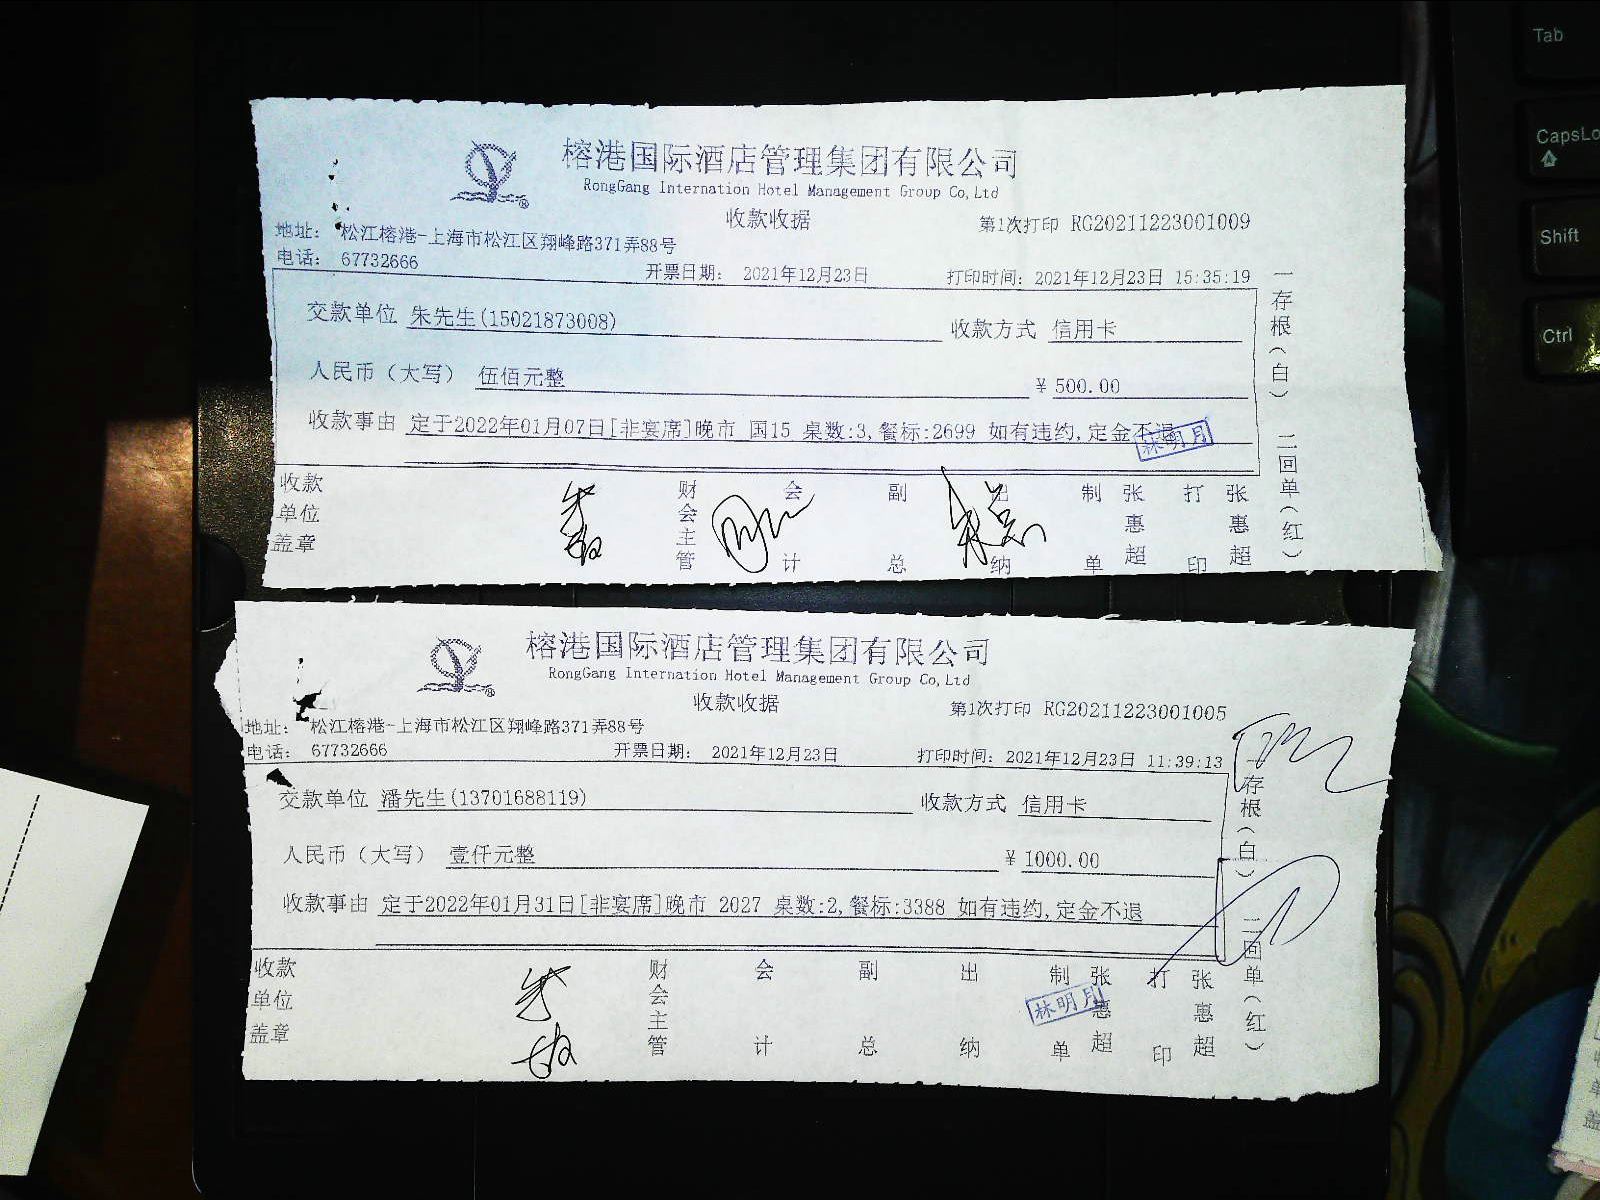 榕港国际酒店管理集团有限公司
RongGang Internation Hotel Management Group Co,Ltd
收款收据
第1次打印 RG20211223001009
地址： 松江榕港-上海市松江区翔峰路371弄88号
电话： 67732666
开票日期： 2021年12月23日
打印时间：2021年12月23日 15:35:19
交款单位 朱先生(15021873008)
收款方式 信用卡
人民币（大写） 伍佰元整
¥ 500.00
收款事由 定于2022年01月07日[非宴席]晚市 国15 桌数:3,餐标:2699 如有违约,定金不退
林明月
收款单位盖章
财会主管
会计
副总
出纳
制单
张惠超
打印
张惠超
一存根（白） 二回单（红）
榕港国际酒店管理集团有限公司
RongGang Internation Hotel Management Group Co,Ltd
收款收据
第1次打印 RG20211223001005
地址： 松江榕港-上海市松江区翔峰路371弄88号
电话： 67732666
开票日期： 2021年12月23日
打印时间：2021年12月23日 11:39:13
交款单位 潘先生(13701688119)
收款方式 信用卡
人民币（大写） 壹仟元整
¥ 1000.00
收款事由 定于2022年01月31日[非宴席]晚市 2027 桌数:2,餐标:3388 如有违约,定金不退
收款单位盖章
财会主管
会计
副总
出纳
制单
张惠超
打印
张惠超
林明月
一存根（白） 二回单（红）
Tab
CapsLo
Shift
Ctrl